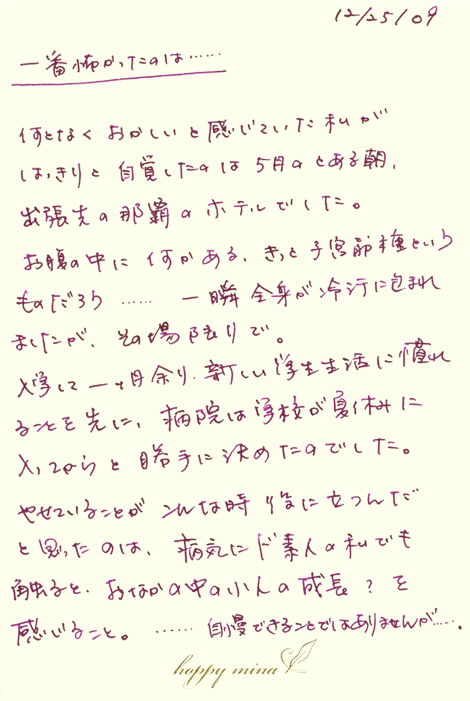 12/25/09
一番怖かったのは……
何となくおかしいと感じていた私が
はっきりと自覚したのは5月のとある朝、
出張先の那覇のホテルでした。
お腹の中に何かある、きっと子宮筋種という
ものだろう…… 一瞬全身が冷汗に包まれ
ましたが、その場限りで。
入学して一ヶ月余り、新しい学生生活に慣れ
ることを先に、病院は学校が夏休みに
入ってからと勝手に決めたのでした。
やせていることがこんな時役に立つんだ
と思ったのは、病気にド素人の私でも
触ると、おなかの中の小人の成長?を
感じること。……自慢できることではありませんが……。
hoppy mina